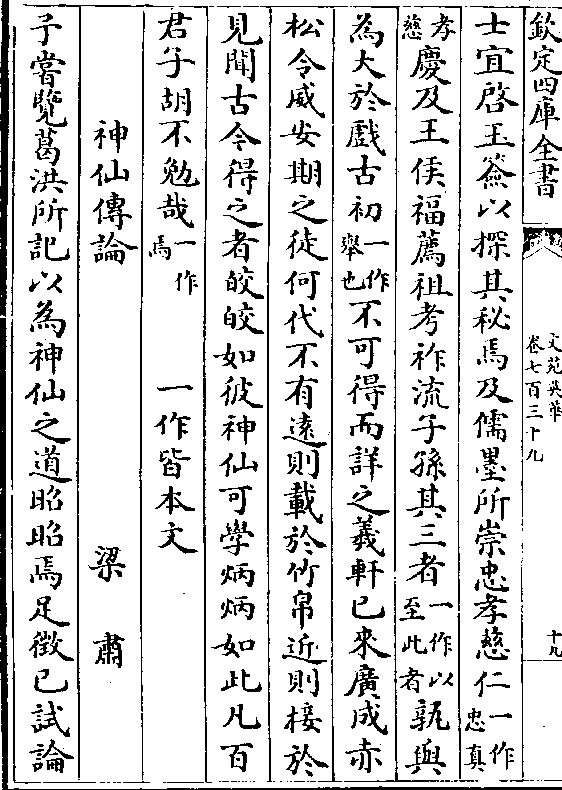 欽定四庫全書
文苑英華
卷七百三十九
十九
士宜啓玉薟以探其秘焉及儒墨所崇忠孝慈仁一作忠真
孝慈慶及王侯福薦祖考祚流子孫其三者一作以至此者孰與
為大於戲古初一作舉也不可得而詳之羲軒已來廣成赤
松令威安期之徒何代不有遠則載於竹帛近則接於
見聞古今得之者皎皎如彼神仙可學炳炳如此凡百
君子胡不勉哉一作焉 一作皆本文
神仙傳論 梁肅
予嘗覽葛洪所記以為神仙之道昭昭焉足徵已試論